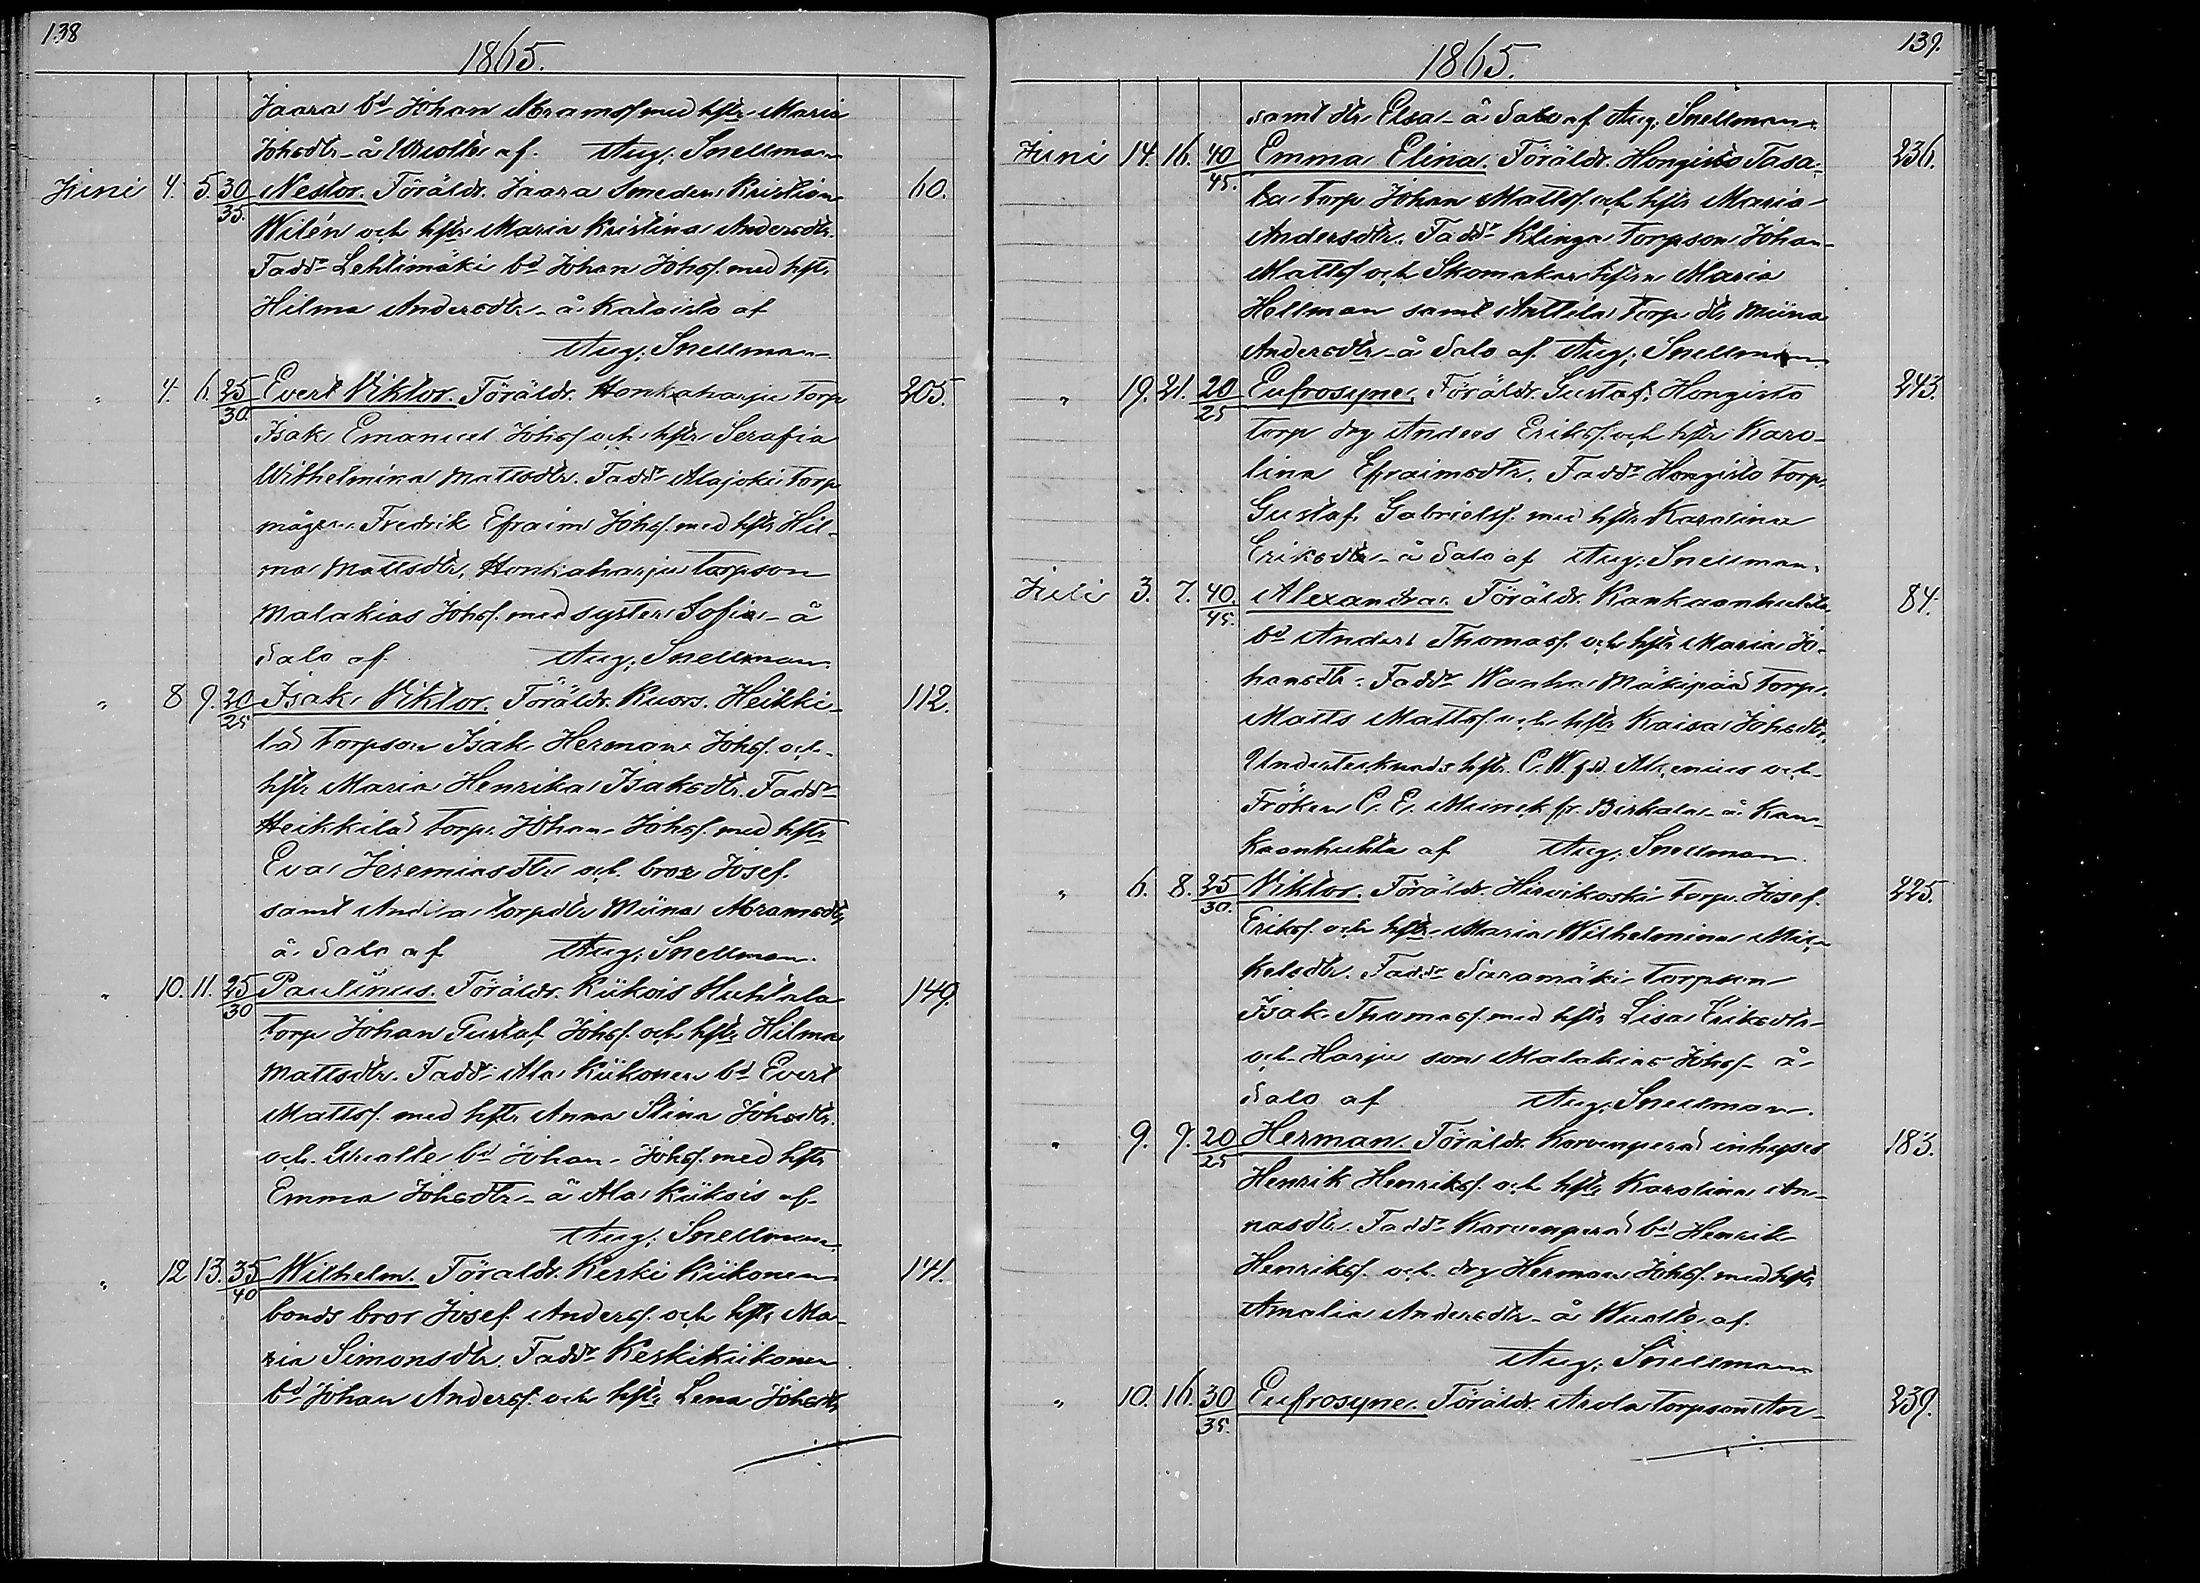 138
1865.
Jaara bd Johan Abramsf med hstr Maria
Johsdtr - å af Aug. Snellman
Juni 4. 5. 30/35 Nestor. Föräldr. Jaara Smeden Kristian 60.
Wilén och hstr Maria Kristina Andersdtr.
Fadd: Lehtimäki bd Johan Johsf. med hstr
Hilma Andersdtr - å Kaloisto af
Aug. Snellman
" 4. 6. 25/30 Evert Viktor. Föräldr. Honkaharju torp 205.
Isak Emanuel Johsf och hstr Serafia
Wilhelmina Mattsdtr. Fadd: Alajoki torp
mågen Fredrik Efraim Johsf. med hstr Hil-
ma Mattsdtr, Honkaharju torpson
Malakias Johsf. med syster Sofia - å
Salo af Aug. Snellman.
" 8 9. 20/25 Isak Viktor. Föräldr. Kuors. Heikki- 112.
lä torpson Isak Herman Johsf. och
hstr Maria Henrika Isaksdtr. Fadd:
Heikkilä torp. Johan Johsf. med hstr
Eva Jeremiasdtr och bror Josef.
samt torpdtr Miina Abramsdtr
å Salo af Aug. Snellman.
" 10. 11. 25/30 Paulinus. Föräldr. Kiikois Huhtala 149.
torp Johan Gustaf Johsf. och hstr Hilma
Mattsdtr. Fadd: Ala Kiikonen bd Evert
Mattsf. med hstr Anna Stina Johsdtr.
och bd Johan Johsf. med hstr
Emma Johsdtr - å Ala Kiikois af
Aug. Snellman.
" 12 13. 35/40 Wilhelm. Föraldr. Keski Kiikonen 141.
bonds bror Josef Andersf. och hstr Ma-
ria Simonsdtr. Fadd: Keskikiikonen
bd Johan Andersf. och hstr Lena Johsdtr
139.
1865.
samt dtr Elsa - å Salo af Aug. Snellman.
Juni 14. 16. 40/45. Emma Elina. Föräldr. Hongisto Tasa- 236.
torp Johan Mattsf. och hstr Maria
Andersdtr. Fadd: Klinga torpson Johan
Mattsf och Skomakar hstrn Maria
Hellman samt Anttila torp dtr Miina
Andersdtr - å Salo af. Aug. Snellman.
" 19. 21. 20/25 Eufrosyne. Föräldr. Gustaf. Hongisto 243.
torp drg Anders Eriksf. och hstr Karo-
lina Efraimsdtr. Fadd: Hongisto torp.
Gustaf Gabrielsf. med hstr Karolina
Eriksdtr - å Salo af Aug. Snellman.
Juli 3. 7. 40./45. Alexandra. Föräldr. Kankaanhuhta 84.
bd Anders Thomasf. och hstr Maria Jo-
hansdtr. Fadd: Wanha Mäkipää torp.
Matts Mattsf och hstr Kaisa Johsdtr,
Undertecknads hstr. C. W. född Alcenius och
Fröken C. E. Munck fr. Birkala - å Kan-
kaanhuhta af Aug. Snellman.
" 6. 8. 25/30. Viktor. Föräldr. Hirvikoski torp. Josef. 225.
Eriksf. och hstr Maria Wilhelmina Mic-
kelsdtr. Fadd: Saramäki torpson
Isak Thomasf. med hstr Lisa Eriksdtr
och Harju son Malakias Johsf - å
Salo af Aug. Snellman.
" 9. 9. 20/25 Herman. Föräldr. Korvenperä inhyses 183.
Henrik Henriksf. och hstr Karolina An-
nasdtr. Fadd: Korvenperä bd Henrik
Henriksf. och drg Herman Johsf. med hstr
Amalia Andersdtr - å af.
Aug. Snellman.
" 10. 16. 30/35. Eufrosyne. Föräldr. torpson An- 239.